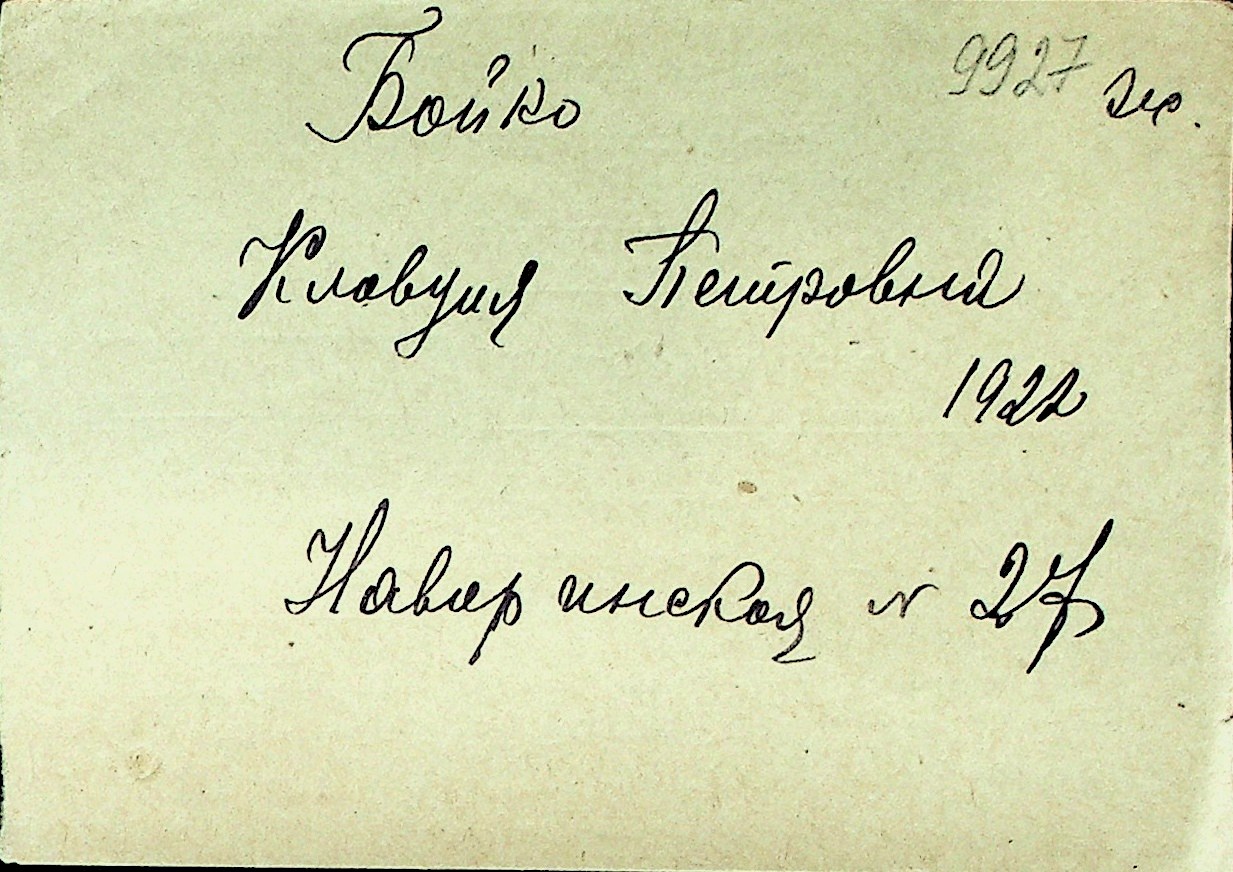 Бойко 9927
Клавдия Петровна
1922
Наваринская № 27